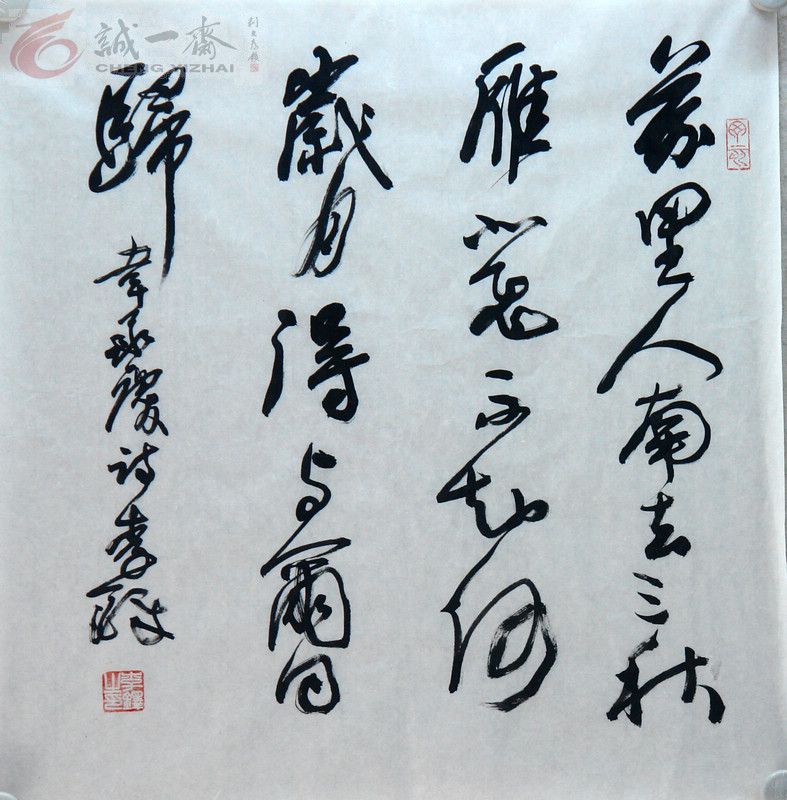 誠一齋
CHENG YIZHAI
萬里人南去三秋
雁北飛不知何
歲月得与爾同
歸
韋承慶詩李鐸